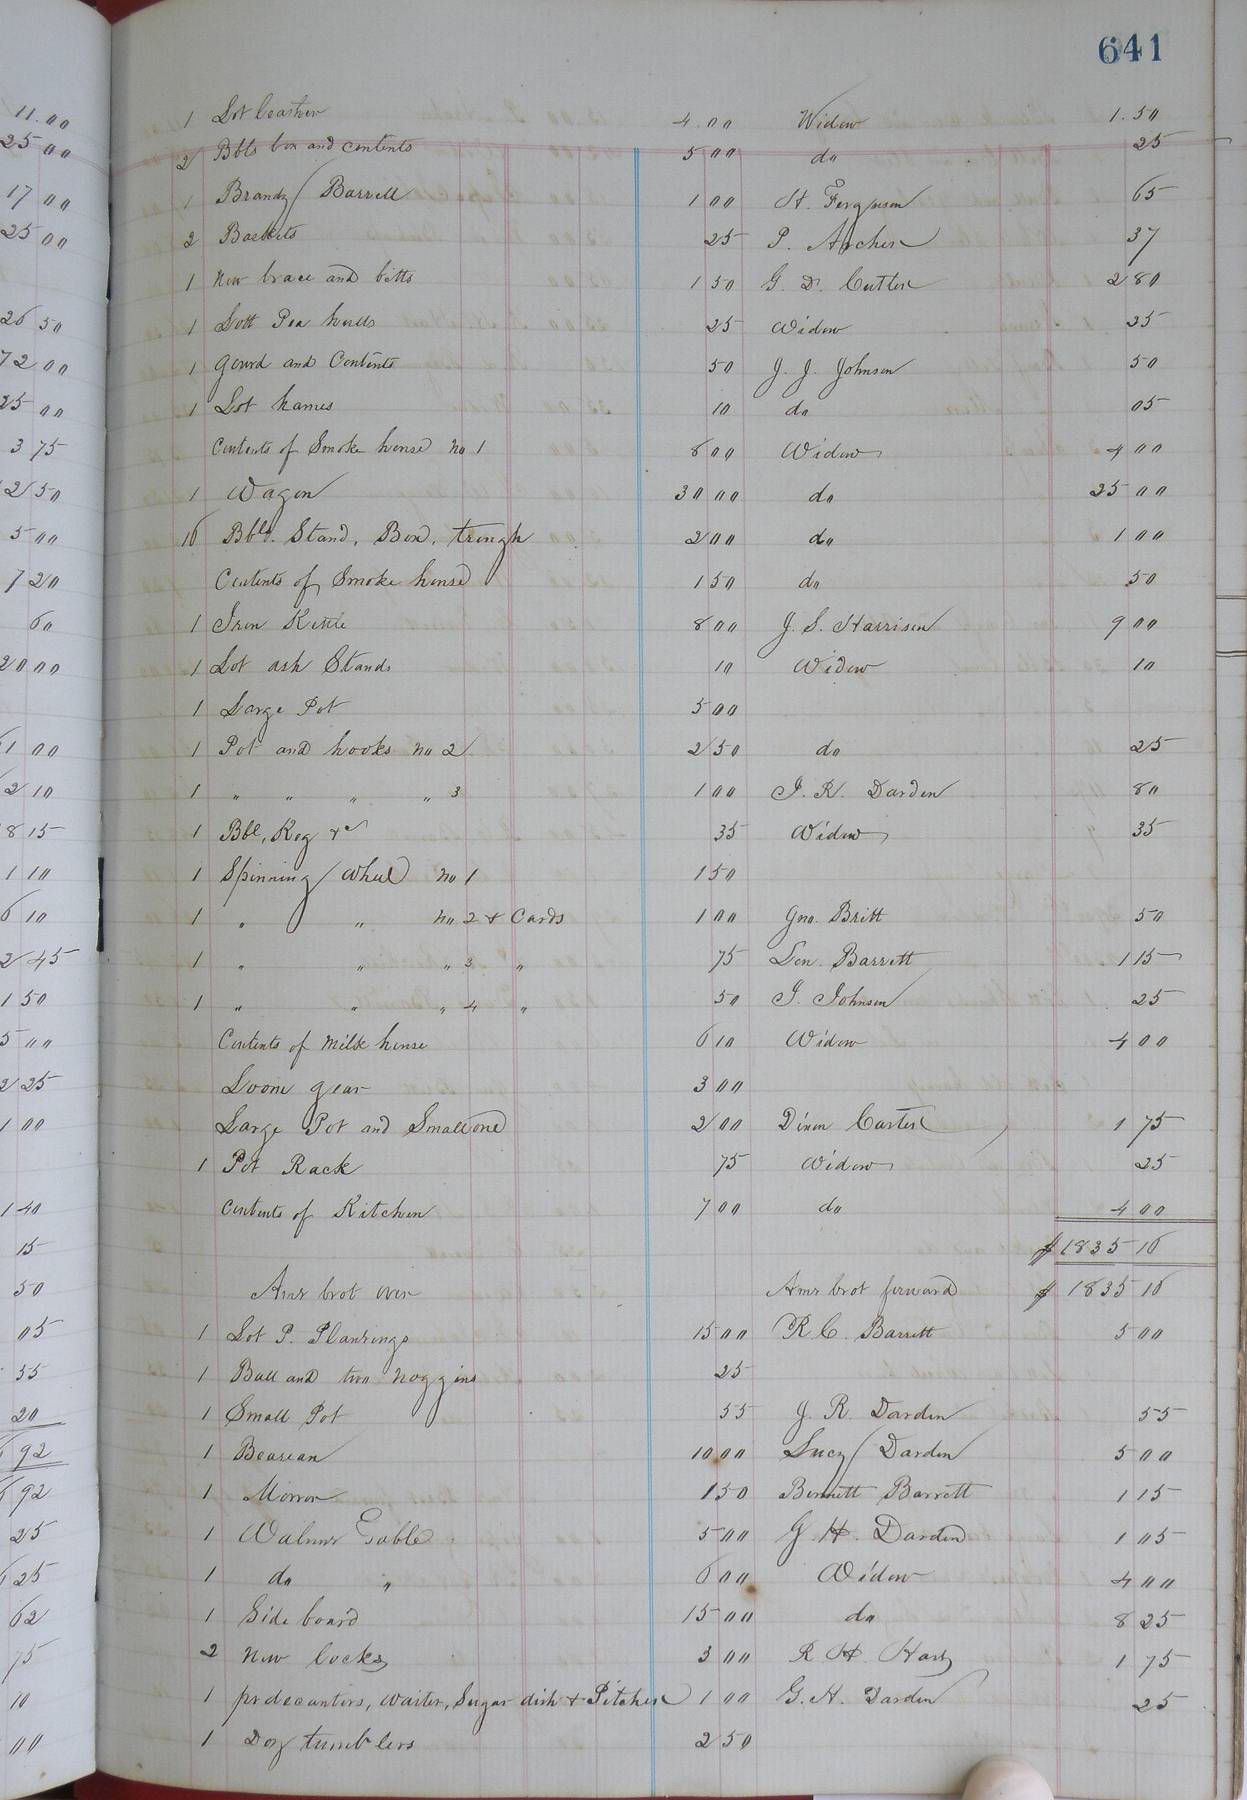 641
11.00
25 00
17 00
25 00
26 50
72 00
25 00
3 75
2 50
5 00
7 20
60
20 00
1 00
2 10
8 15
1 10
6 10
2 45
1 50
5 00
2 25
1 00
1 40
15
50
05
55
20
92
92
25
6 25
62
75
10
00
1 Lot leather 4.00 Widow 1.50
2 Bbls box and contents 5 00 do 25
1 Brandy Barrell 1 00 H. Ferguson 65
2 Baskets 25 P. Archer 37
1 New brace and bitts 1 50 G. D. Cutler 2 80
1 Lott Pea hulls 25 Widow 25
1 Gourd and Contents 50 J. J. Johnson 50
1 Lot hames 10 do 05
Contents of Smoke house No 1 8 00 Widow 4 00
1 Wagon 30 00 do 25 00
16 Bbls. Stand, Box, trough 2 00 do 1 00
Contents of Smoke house 1 50 do 50
1 Iron Kettle 8 00 J. S. Harrison 9 00
1 Lot ash Stands 10 Widow 10
1 Large Pot 5 00
1 Pot and hooks No 2 2 50 do 25
1 " " " " 3 1 00 J. R. Darden 80
1 Bbl, Keg &c 35 Widow 35
1 Spinning Wheel No 1 1 50
1 " " No 2 & Cards 1 00 Jno. Britt 50
1 " " " 3 " 75 Len. Barrett 1 15
1 " " " 4 " 50 J. Johnson 25
Contents of Milk house 6 10 Widow 4 00
Loom gear 3 00
Large Pot and Small one 2 00 Dixon Carter 1 75
1 Pot Rack 75 Widow 25
Contents of Kitchen 7 00 do 4 00
$ 1835 16
Amt brot over Amt brot forward $ 1835 16
1 Lot P. Plankings 15 00 R C. Barrett 5 00
1 Ball and two noggins 25
1 Small Pot 55 J. R. Darden 55
1 Beurean 10 00 Lucy Darden 5 00
1 Mirror 1 50 Bennett Barrett 1 15
1 Walnut Table 5 00 G. H. Darden 1 05
1 do " 6 00 Widow 4 00
1 Side board 15 00 do 8 25
2 New locks 3 00 R H. Hart 1 75
1 pr decanters, waiter, Sugar dish & Pitcher 1 00 G. H. Darden 25
1 Doz tumblers 2 50